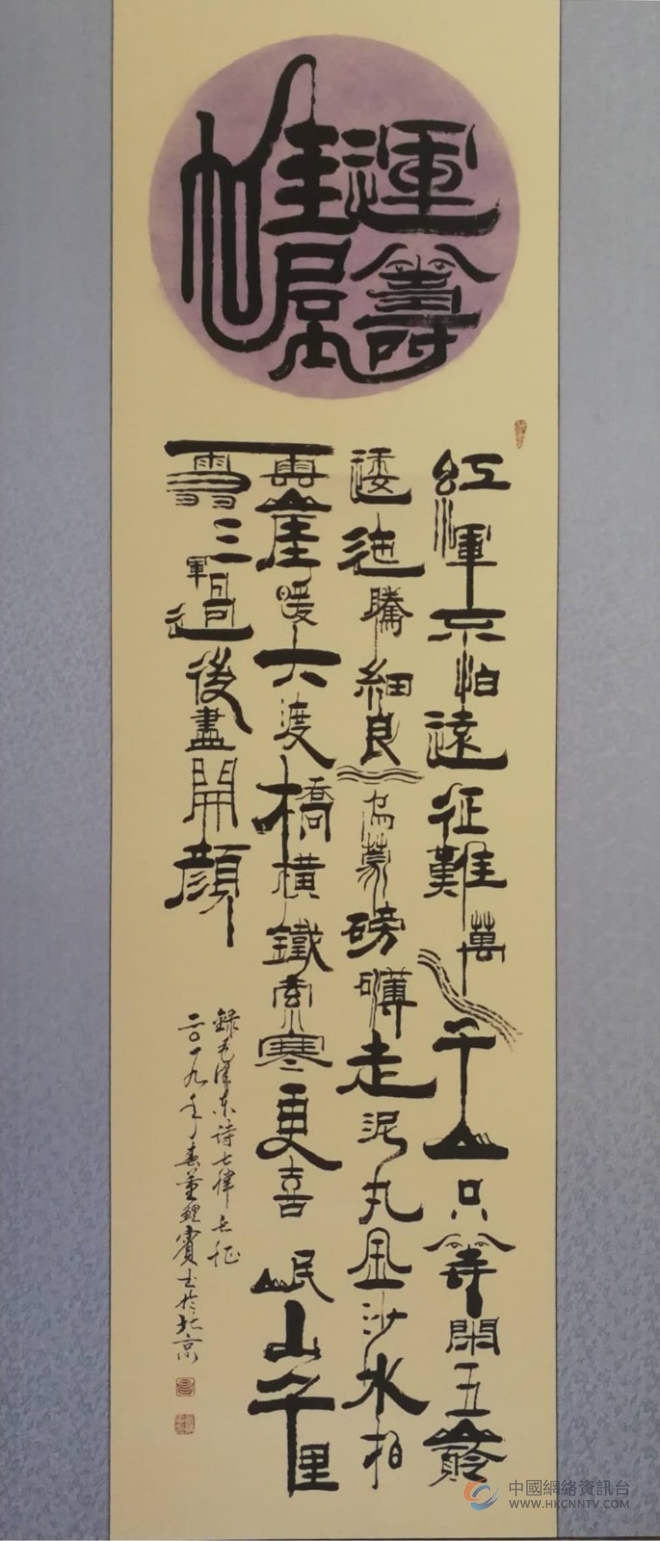 運籌
帷幄
紅軍不怕遠征難萬水千山只等閑五嶺
逶迤騰細浪烏蒙磅礴走泥丸金沙水拍
雲崖暖大渡橋橫鐵索寒更喜岷山千里
雪三軍過後盡開顏
錄毛澤東詩七律長征
二〇一九年春董賓書於北京
中國網絡資訊台
WWW.HKCNNTV.COM